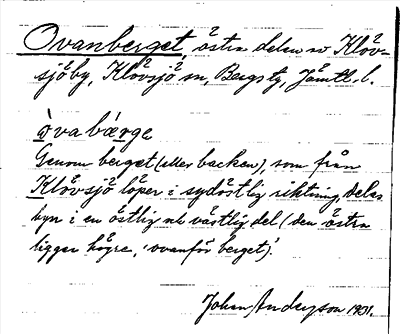 Ovanberget, östra delen av Klöv-
sjö by, Klövsjö sn, Bergs tg, Jämtl. l.
òvabærge
Genom berget (eller backen), som från
Klövsjö löper i sydöstlig riktning, delas
byn i en östlig och västlig del (den östra
ligger högre, 'ovanför berget').
Johan Anderson 1931.